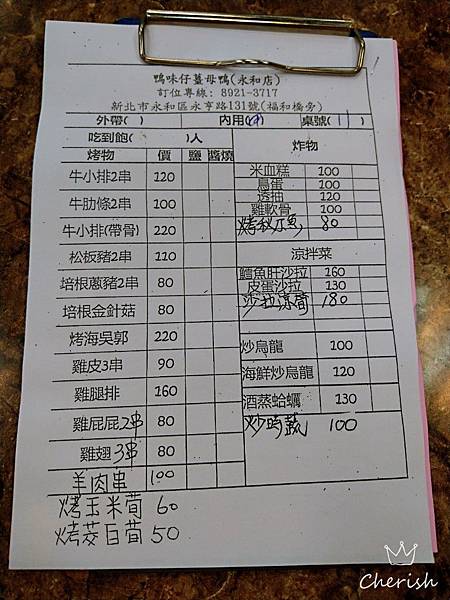 鴨味仔薑母鴨(永和店)
訂位專線: 8921-3717
新北市永和區永亨路131號(福和橋旁)
外帶( ) 內用( ) 桌號(11)
吃到飽( )人
烤物 價 鹽 醬燒
牛小排2串 120
牛肋條2串 100
牛小排(帶骨) 220
松板豬2串 110
培根蔥豬2串 80
培根金針菇 80
烤海吳郭 220
雞皮3串 90
雞腿排 160
雞屁屁2串 80
雞翅3串 80
羊肉串 100
烤玉米荀 60
烤茭白荀 50
炸物
米血糕 100
鳥蛋 100
透抽 120
雞軟骨 100
烤秋刀魚 80
涼拌菜
鱈魚肝沙拉 160
皮蛋沙拉 130
沙拉涼荀 180
炒烏龍 100
海鮮炒烏龍 120
酒蒸蛤蠣 130
炒時蔬 100
Cherish